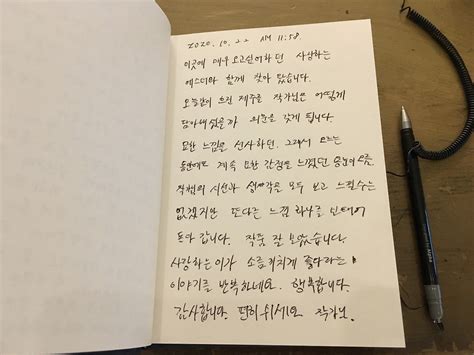 2020. 10. 22 AM 11:58.
이곳에 매우 오고싶어하던 사랑하는
에스더와 함께 찾아 왔습니다.
오늘같이 흐린 제주를 작가님은 어떻게
담아내셨을까 의문을 갖게 됩니다
묘한 느낌을 선사하던, 그래서 오르는
동안에도 계속 묘한 감정을 느꼈던 용눈이오름.
작가님의 시선과 생각을 모두 보고 느낄수는
없겠지만 또다른 느낌 하나를 얻어
돌아 갑니다. 작품 잘 보았습니다.
사랑하는이가 소름끼치게 좋다라는
이야기를 반복하네요. 행복합니다.
감사합니다 편히쉬세요 작가님.